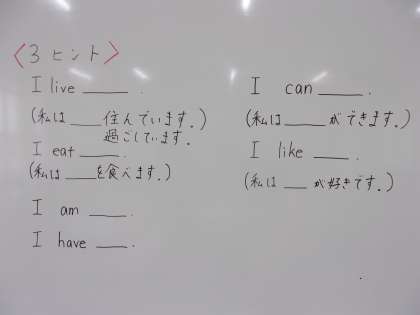 〈3ヒント〉
I live ______ .
(私は ____ 住んでいます.)
過ごしています.
I eat _____ .
(私は ____を食べます.)
I am _____ .
I have ____ .
I can ______ .
(私は _____ ができます.)
I like _____ .
(私は ___ が好きです.)